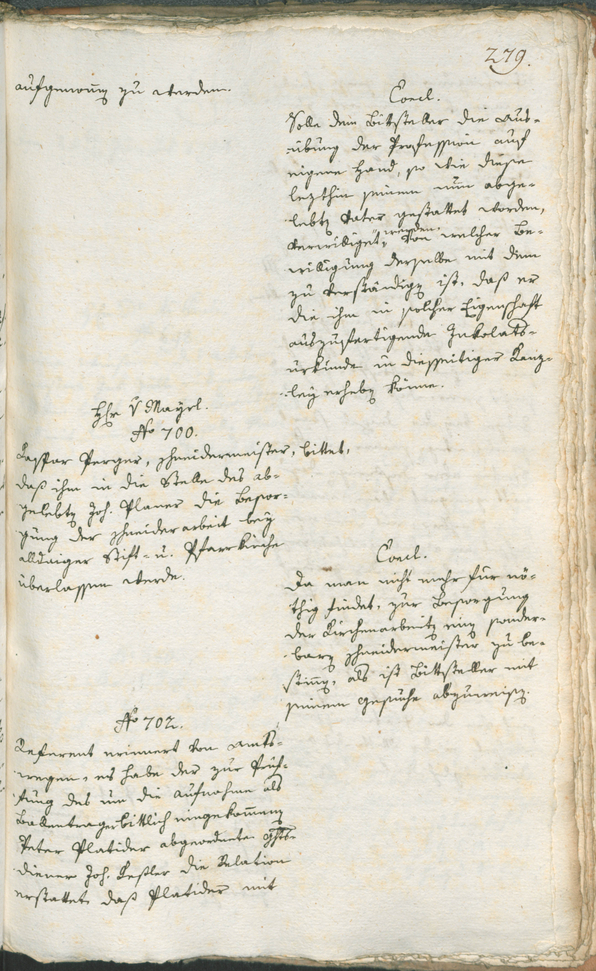 279.
aufgenomen zu werden.
Concl.
Solle dem Bittsteller die Aus-
übung der Profession auf
eigene Hand, so wie diese
lezthin seinem nun abge-
lebten Vater gestattet worden,
verwilliget werden. Von welcher Be-
willigung derselbe mit dem
zu verständigen ist, daß er
die ihm in solcher Eigenschaft
auszufertigende Inkolats-
urkunde in diesseitiger Kanz-
ley erheben könne.
Hr. v Mayrl.
No 700.
Caspar Perger, Schneidermeister, bittet,
daß ihm in die Stelle des ab-
gelebten Joh. Planer die Besor-
gung der Schneiderarbeit bey
alldaiger Stift- u. Pfarrkirche
überlassen werde.
Concl.
Da man nicht mehr für nö-
thig findet, zur Besorgung
der Kirchenarbeiten einen sonder-
baren Schneidermeister zu be-
stimen, als ist Bittsteller mit
seinem Gesuche abzuweisen.
No 702.
Referent erinnert von Amts-
wegen, es habe der zur Prüf-
fung des um die Aufnahme als
Ballentrager bittlich eingekommenen
Peter Platider abgeordnete Ghts-
diener Joh. Keßler die Relation
erstattet, daß Platider mit